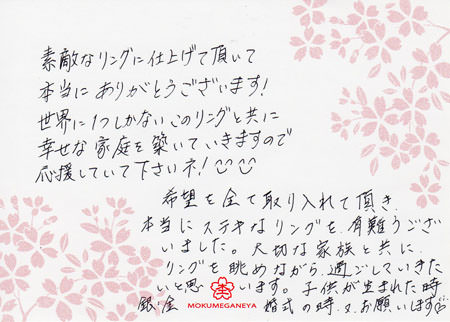 素敵なリングに仕上げて頂いて
本当にありがとうございます!
世界に1つしかないこのリングと共に
幸せな家庭を築いていきますので
応援していて下さいネ!
希望を全て取り入れて頂き
本当にステキなリングを有難うござい
ました。大切な家族と共に
リングを眺めながら過ごしていきた
いと思います。子供が生まれた時
銀・金婚式の時、又お願いします
MOKUMEGANEYA